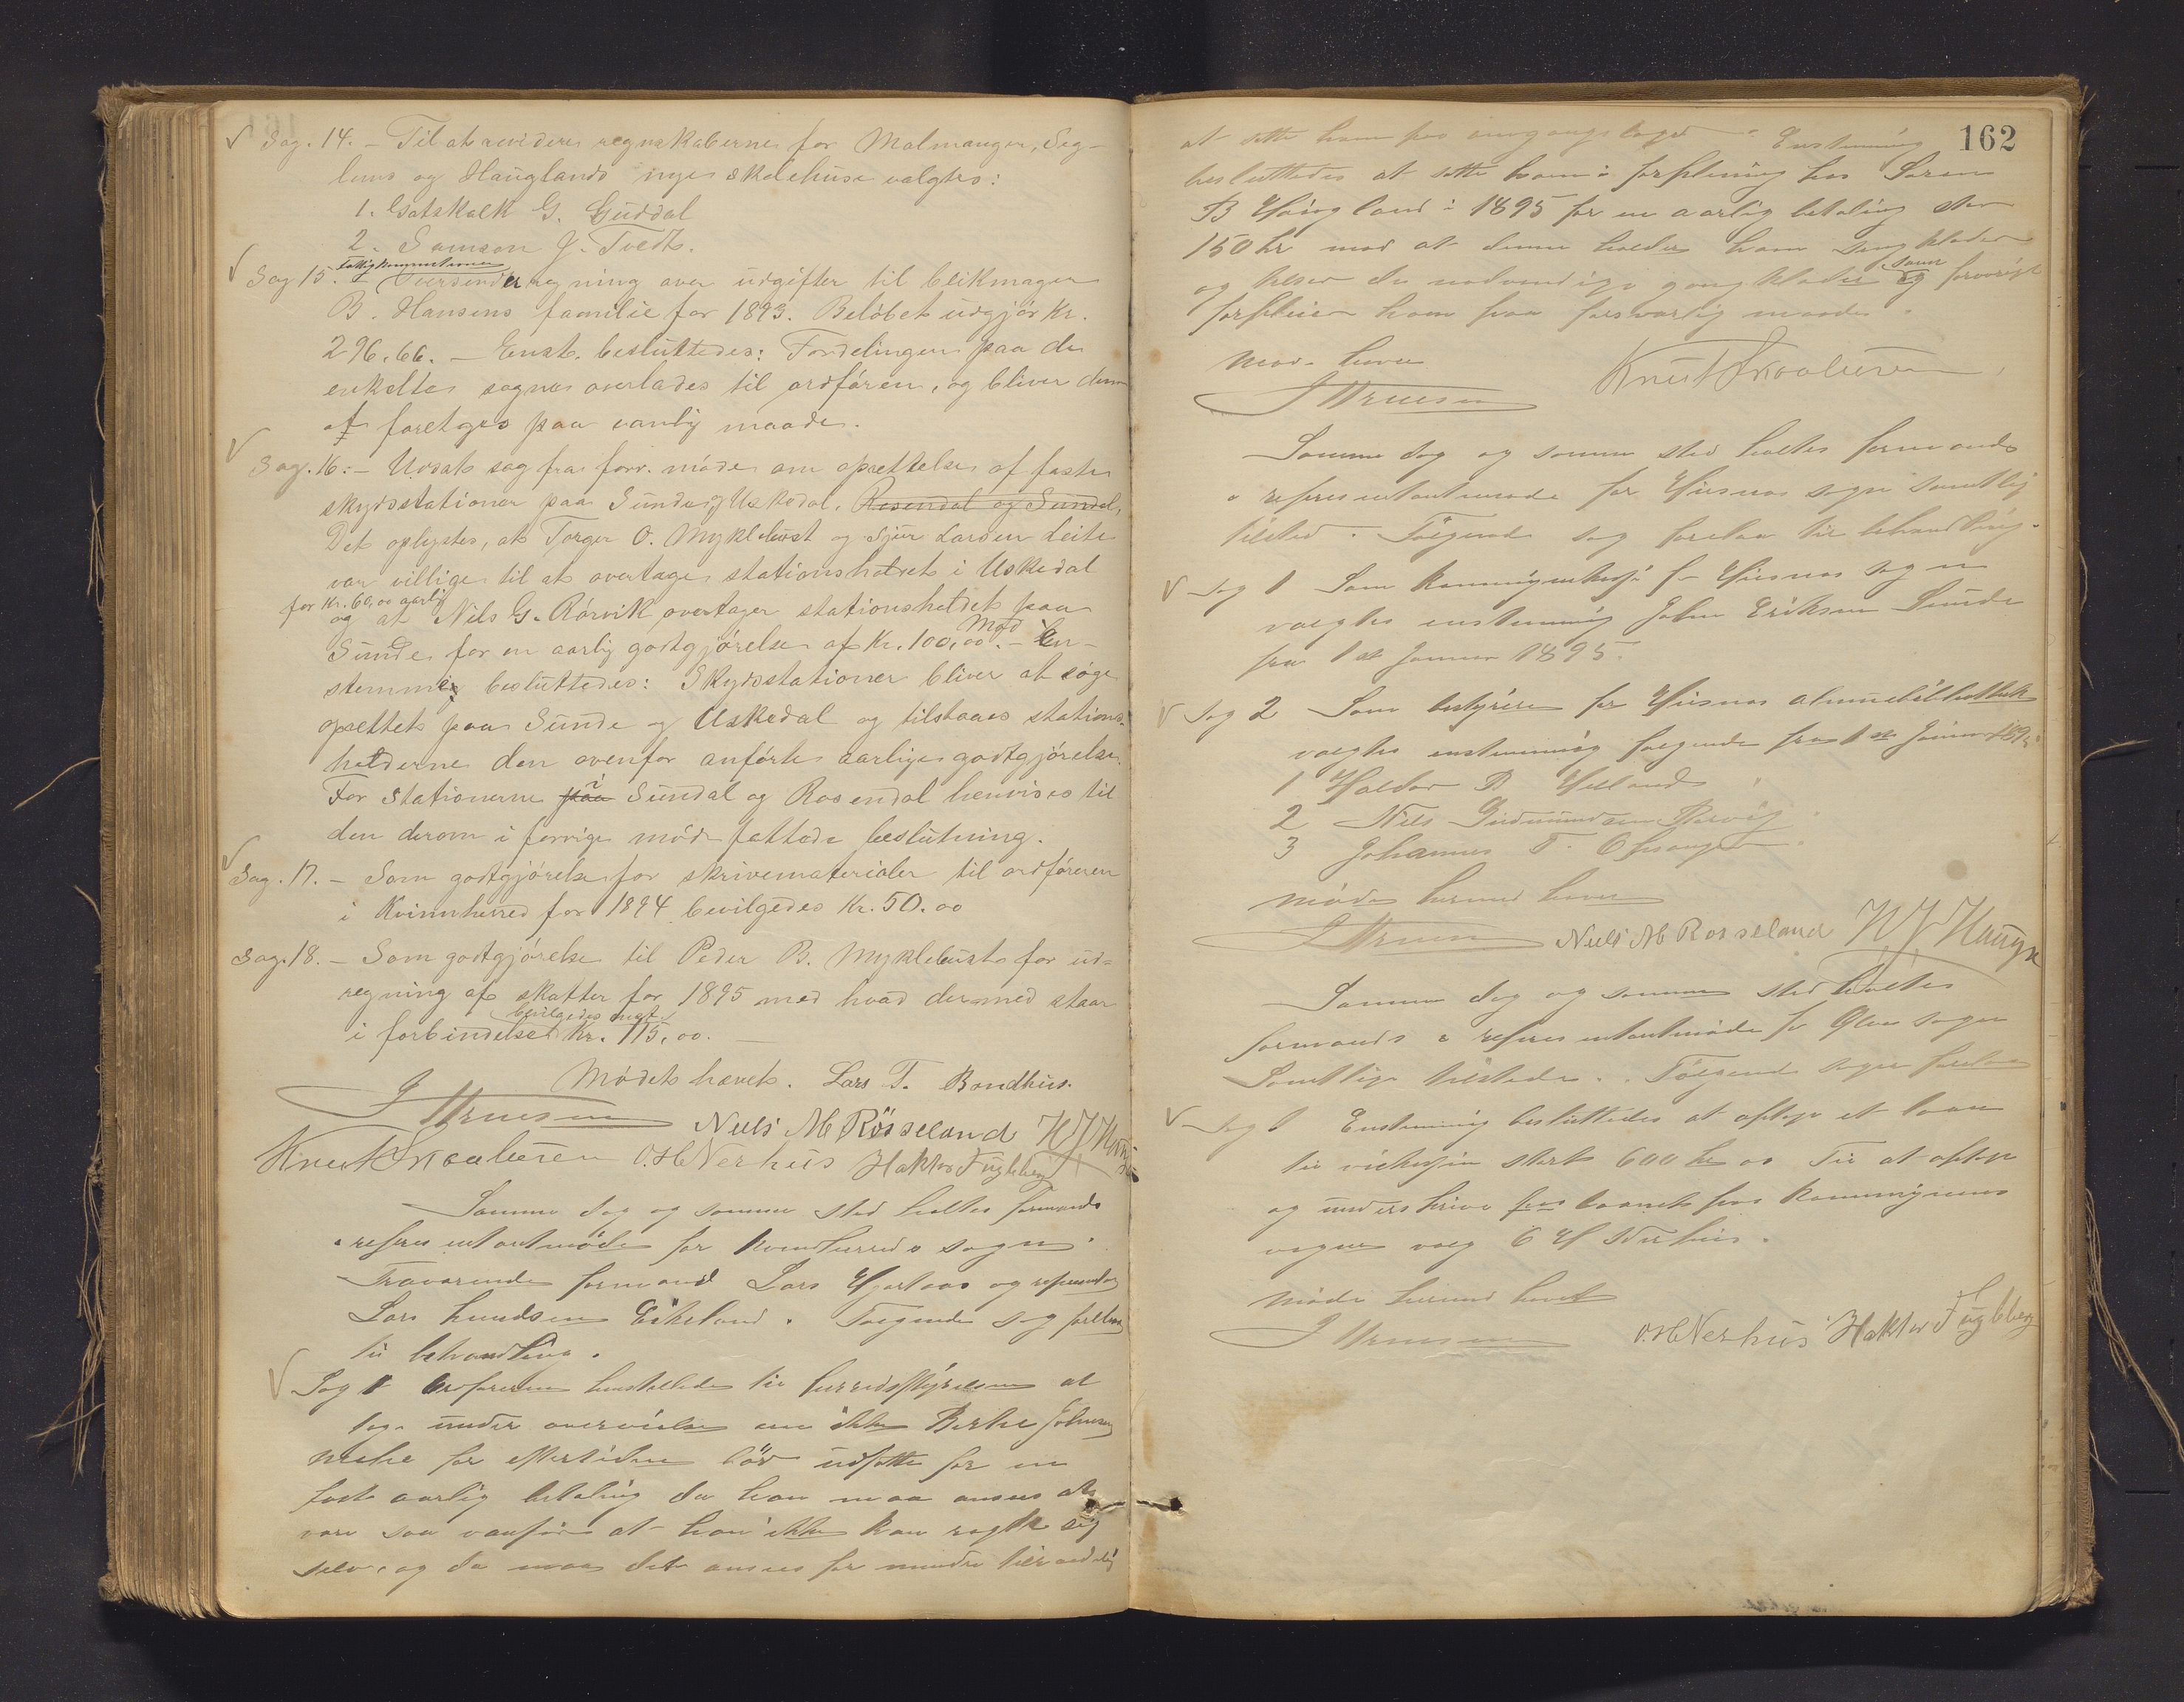 Sag. 14. - Til at revidere regnskaberne for Malmanger, Seg-
lems og Hauglands nye skolehuse valgtes:
1. Gotskalk G. Guddal
2. Samson J. Tvedt.
Fattigkommissionen
Sag 15. Oversender regning over udgifter til blikmager
B. Hansens familie for 1893. Beløbet udgjør Kr.
296.66. - Enst. besluttedes: Fordelingen paa de
enkelte sogne overlades til ordføren, og bliver den
at foretages paa vanlig maade.
Sag. 16. - Udsat sag fra forr. møde om oprettelse af faste
skydsstationer paa Sunde og Uskedal. Rosendal og Sundal,
Det oplystes, at Torger O. Myklebust og Sjur Larsen Leite
var villige til at overtage stationsholdet i Uskedal
for Kr. 60,00 aarlig
og at Nils G. Rørvik overtager stationsholdet paa
Sunde for en aarlig godtgjørelse af Kr. 100,00. - Mod En-
stemmig besluttedes: Skydsstationer bliver at søge
oprettet paa Sunde og Uskedal og tilstaaes stations-
holderne den ovenfor anførte aarlige godtgjørelse.
For Stationerne paa Sundal og Rosendal henvises til
den derom i forrige møde fattede beslutning.
Sag. 17. - Som godtgjørelse for skrivematerialer til ordføreren
i Kvinnherred for 1894 bevilgedes Kr. 50.00
Sag. 18. - Som godtgjørelse til Peder B. Myklebust for ud-
regning af skatter for 1895 med hvad dermed staar
bevilgedes
i forbindelse Kr. 115,00.
Mødet hævet. Lars T. Bondhus.
Nils M Rösseland
O.H Nerhus
Samme dag og samme sted holtes formands
& representantmøde for Kvindherreds sogn
Fraværende formand Lars Hjortaas og
Lars Knudsen Eikeland. Følgende sag forelaa
til behandling.
Sag 1 Ordføreren henstillede til herredsstyrelsen at
tage under overveielse om ikke Johnsen
for eftertiden bør udsættes for en
fast aarlig betaling da han maa ansees at
være saa vanfør at han ikke kan røgte sig
selv, og da maa det ansees for mindre tilraadelig
162
at sette ham paa omgangslægd. Enstemmig
besluttedes at sette ham i forpleining hos Søren
B Haugland i 1895 for en aarlig betaling stor
150 kr mod at denne holder ham seng klæder
og helser de nødvendige gang klæder samt og forøvrigt
forpleier ham paa forsvarlig maade.
Mød. hævet
Samme dag og samme sted holtes formands
& representantmøde for Husnes sogn samtlig
tilsted. Følgende sag forelaa til behandling.
Sag 1 Som f- Husnes sogn
valgtes enstemmig John Eriksen Sunde
fra 1st Januar 1895.
Sag 2 Som bestyrere for Husnes almuebibliothek
valgtes enstemmig følgende fra 1st Januar 1895
1 Haldor B Helland
2 Nils Gudmundsen Rørvig
3 Johannes T. Opsanger
Møde hermed hævet
Niels M Rosseland
Samme dag og samme sted holtes
formands & representantmøde for Ølve sogn
Samtlige tilstede. Følgende sager forelaa
Sag 1 Enstemmig besluttedes at optage et laan
stort 600 kr 00 Til at optage
og underskrive for laanet paa kommunens
vegne valg O H Nerhus.
Møde hermed hævet
O.H Nerhus